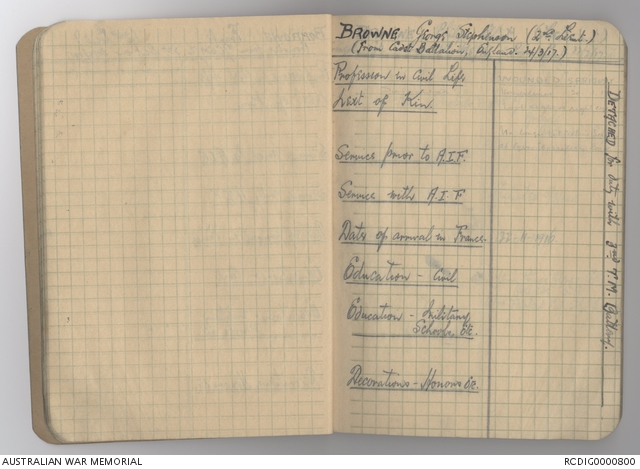 BROWNE George Stephenson (2nd Lieut.)
(From Cadet Battalion, England. 24/3/17.)
Profession in Civil Life
Next of Kin.
Service prior to A.I.F.
Service with A.I.F
Date of arrival in France.
Education - Civil
Education - Military
Schools Etc.
Decorations - Honors &c.
DETACHED for duty with 3rd T.M. Battery.
AUSTRALIAN WAR MEMORIAL
RCDIG0000800